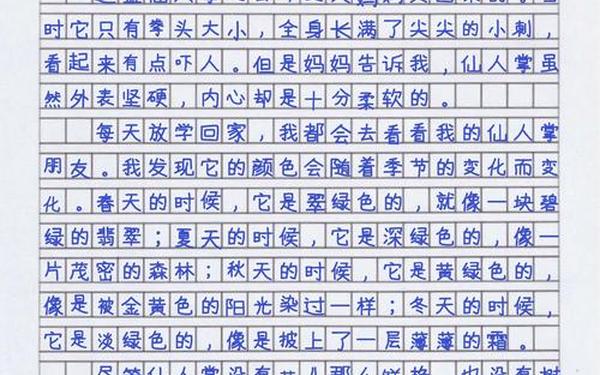 时它只有拳头大小，全身长满了尖尖的小刺，
看起来有点吓人。但是妈妈告诉我，仙人掌虽
然外表坚硬，内心却是十分柔软的。
每天放学回家，我都会去看看我的仙人掌
朋友。我发现它的颜色会随着季节的变化而变
化。春天的时候，它是翠绿色的，就像一块碧
绿的翡翠；夏天的时候，它是深绿色的，像一
片茂密的森林；秋天的时候，它是黄绿色的，
像是被金黄色的阳光染过一样；冬天的时候，
它是淡绿色的，像是披上了一层薄薄的霜。
尽管仙人掌没有花儿那么鲜艳，也没有树